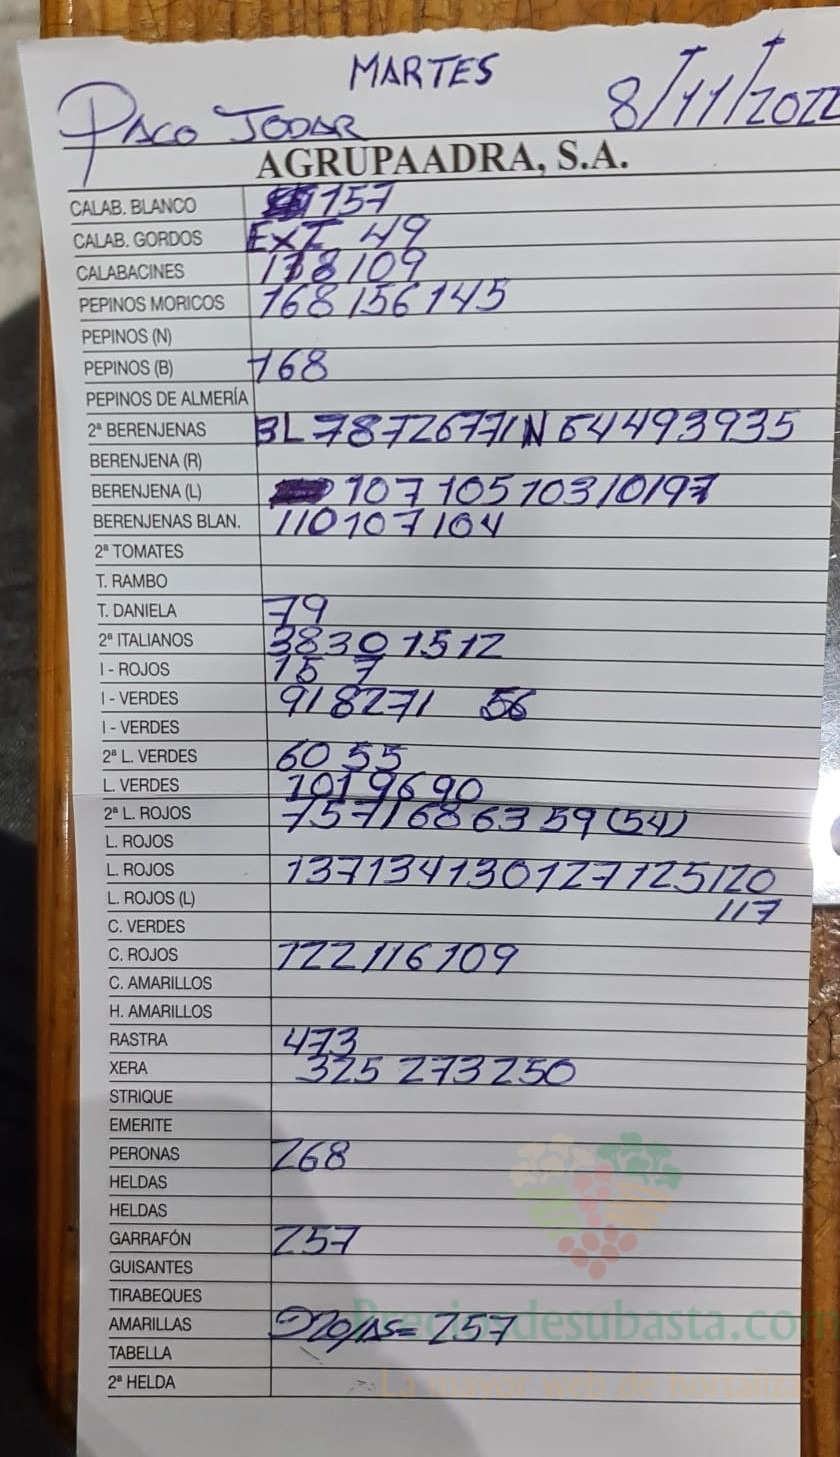 MARTES
PACO JODAR 8/11/2022
AGRUPAADRA, S.A.
CALAB. BLANCO 157
CALAB. GORDOS EXT 49
CALABACINES 118 109
PEPINOS MORICOS 168 156 145
PEPINOS (N)
PEPINOS (B) 168
PEPINOS DE ALMERÍA
2ª BERENJENAS BL 78 72 67 71 N 54 49 39 35
BERENJENA (R)
BERENJENA (L) 107 105 103 101 97
BERENJENAS BLAN. 110 107 104
2ª TOMATES
T. RAMBO
T. DANIELA 79
2ª ITALIANOS 38 30 15 12
I - ROJOS 15 7
I - VERDES 91 82 71 56
I - VERDES
2ª L. VERDES 60 55
L. VERDES 101 96 90
2ª L. ROJOS 75 71 68 63 59 (54)
L. ROJOS
L. ROJOS 137 134 130 127 125 120
L. ROJOS (L) 117
C. VERDES
C. ROJOS 122 116 109
C. AMARILLOS
H. AMARILLOS
RASTRA 473
XERA 325 273 250
STRIQUE
EMERITE
PERONAS 268
HELDAS
HELDAS
GARRAFÓN 257
GUISANTES
TIRABEQUES
AMARILLAS = 257
Preciosdesubasta.com
TABELLA
2ª HELDA La mayor web de hortalizas